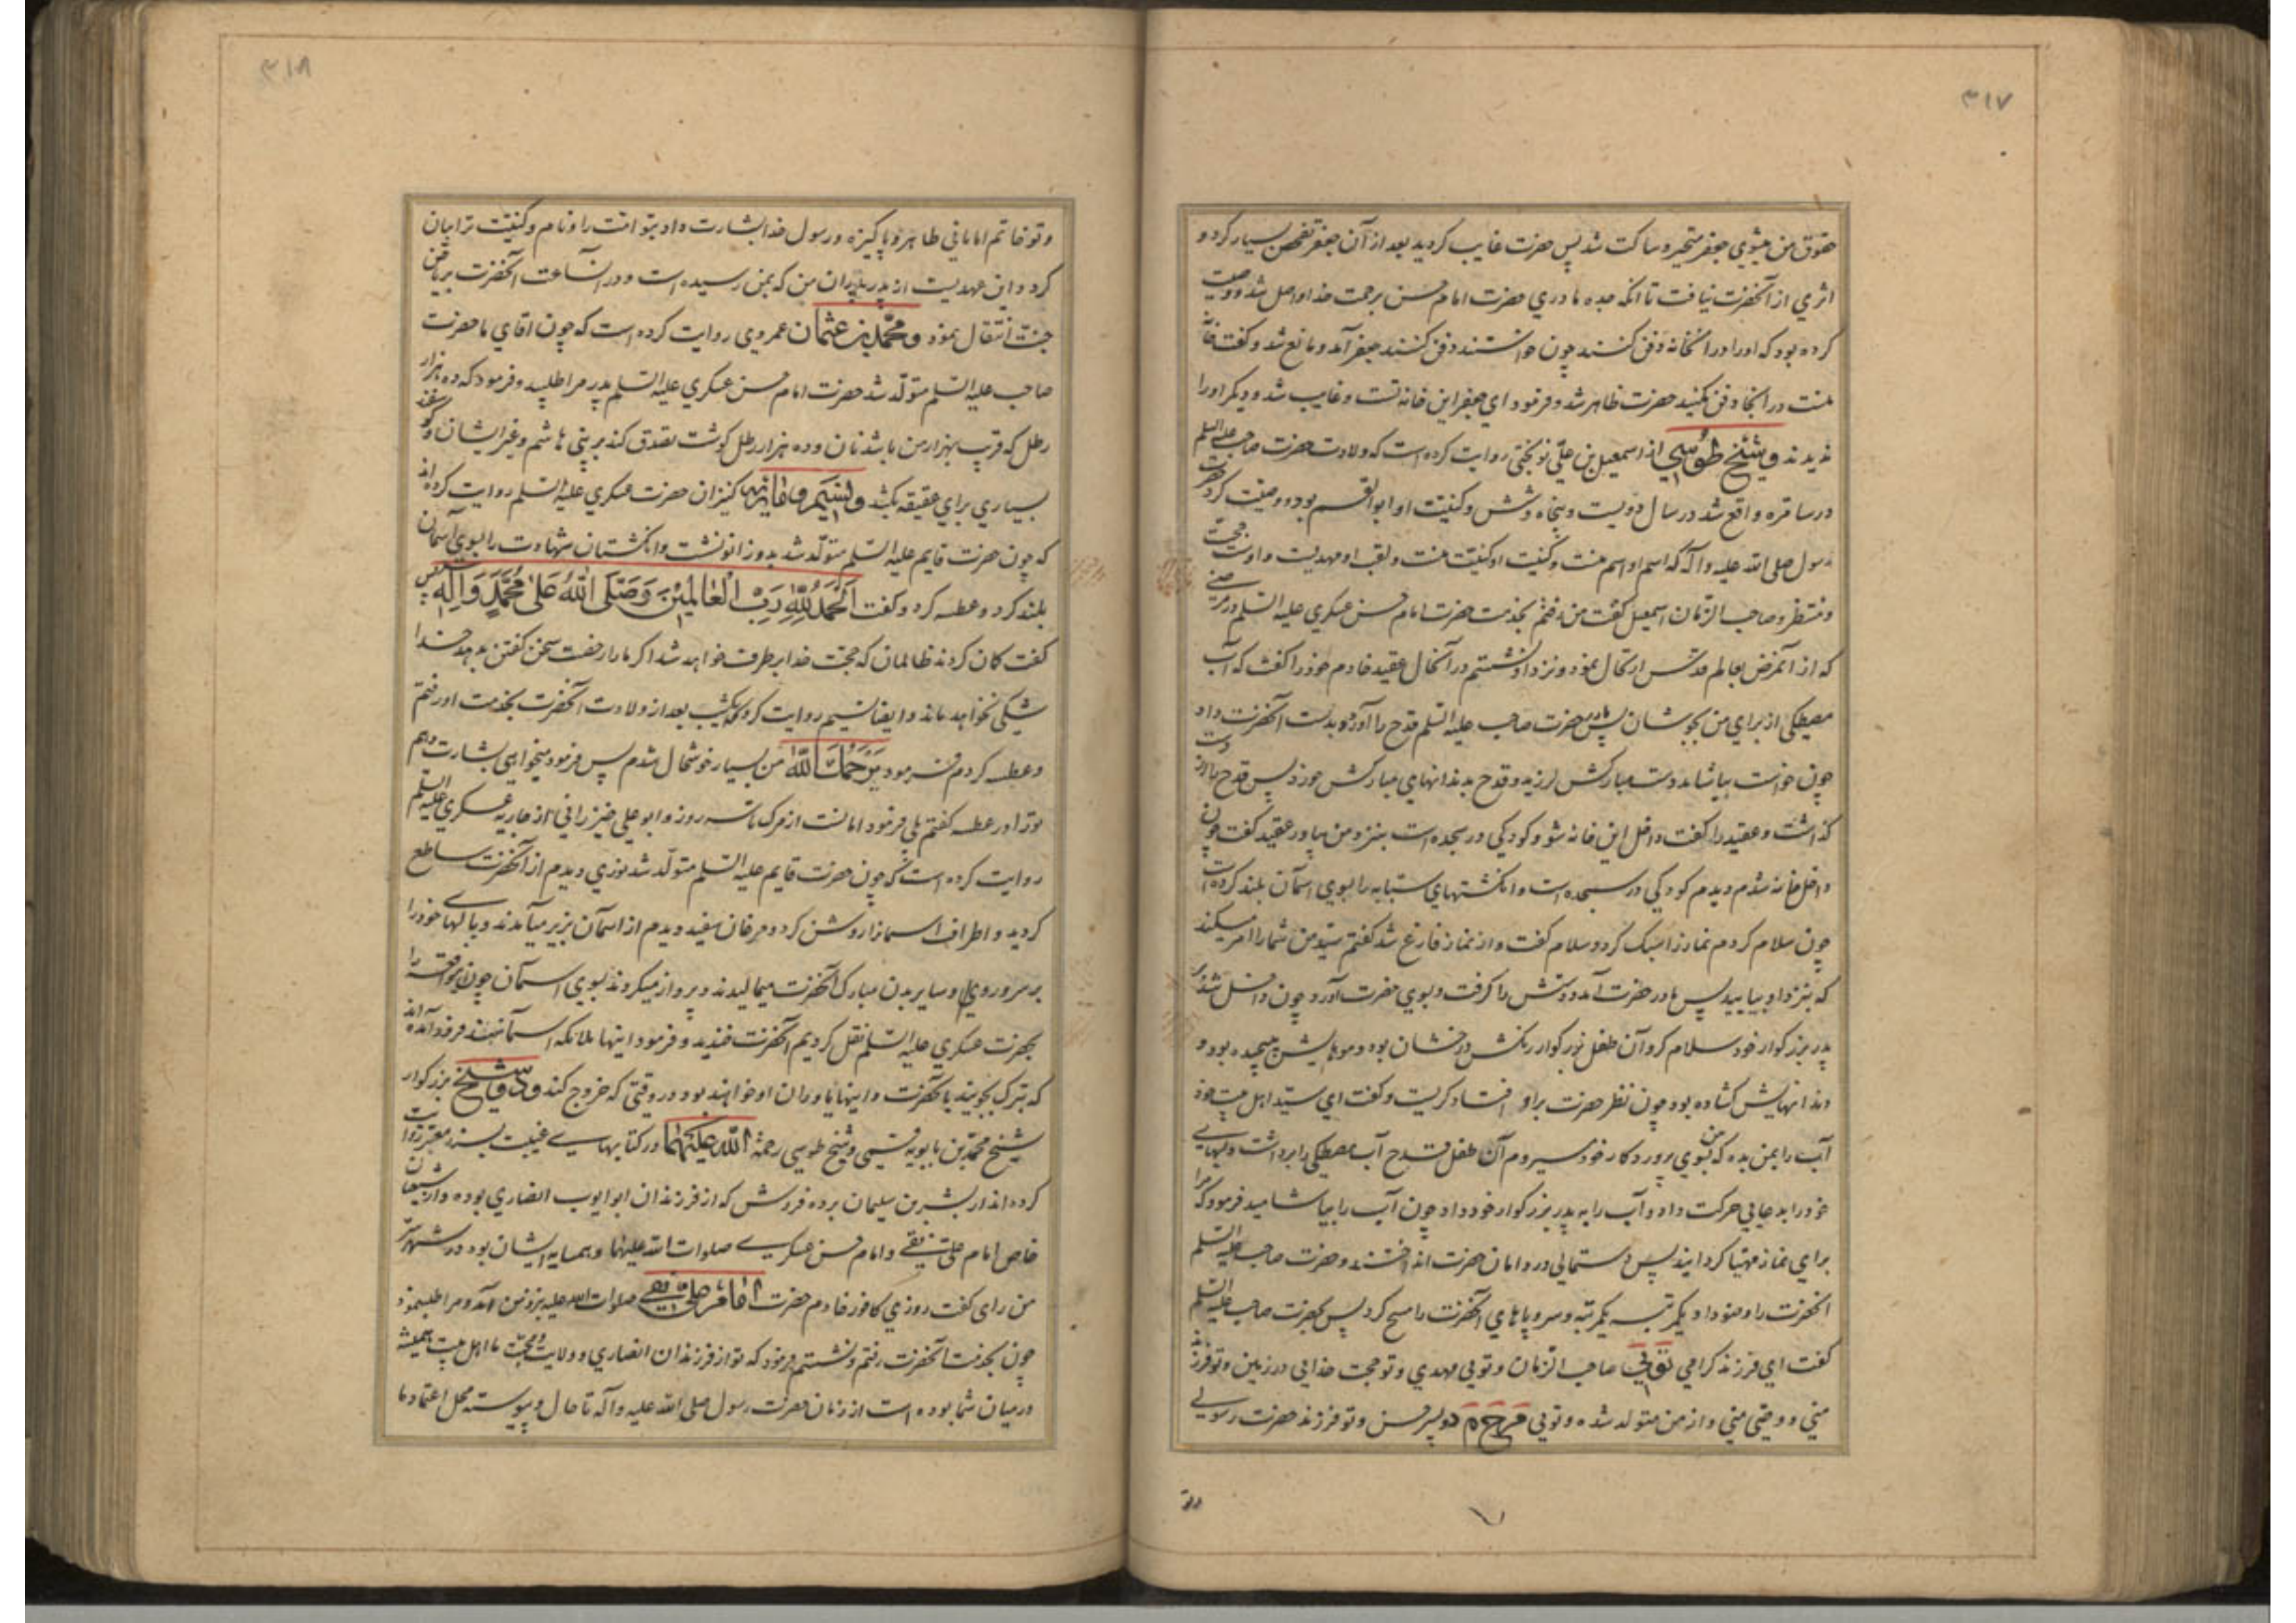 ۳۱۷
حقوق من میشوي جعفر متحیر و ساکت شد پس حضرت غایب کردید بعد از آن جعفر تفحص بسیار کرد و
اثري از آنحضرت نیافت تا آنکه جده مادري حضرت امام حسن برحمت خدا واصل شد و وصیت
کرده بود که او را در آنخانه دفن کنند چون خواستند دفن کنند جعفر آمد و مانع شد و کفت خانه
منست در اینجا دفن مکنید حضرت ظاهر شد و فرمود اي جعفر این خانه تست و غایب شد و دیکر او را
ندیدند و شیخ طوسي از اسمعیل بن علي نوبختي روایت کرده است که ولادت حضرت صاحب علیه السلم
در سامره واقع شد در سال دویست و پنجاه و شش و کنیت او ابوالقسم بود و وصیت کرد حضرت
رسول صلی الله علیه و آله که اسم او اسم منست و کنیت او کنیت منست و لقب او مهدیست و اوست حجت
و منتظر و صاحب الزمان اسمعیل کفت من رفتم بخدمت حضرت امام حسن عسکري علیه السلم در مرضي
که از آنمرض بعالم قدس ارتحال نمود و نزد او نشستم در آنحال عقید خادم خود را کفت که آب
مصطکي از براي من بجوشان پس مادر حضرت صاحب علیه السلم قدح را آورد و بدست آنحضرت داد
چون خواست بیاشامد دست مبارکش لرزید و قدح بدندانهاي مبارکش خورد پس قدح را از دست
کذاشت و عقید را کفت داخل این خانه شو و کودکي در سجده است بنزد من بیاور عقید کفت چون
داخل خانه شدم دیدم کودکي در سجده است و انکشتهاي سبابه را بسوي اسمان بلند کرده است
چون سلام کردم نماز را سبک کرد و سلام کفت و از نماز فارغ شد کفتم سید من شما را امر میکند
که بنزد او بیایید پس مادر حضرت آمد و دستش را کرفت و بسوي حضرت آورد چون داخل شد بر
پدر بزرکوار خود سلام کرد آن طفل بزرکوار رنکش درخشان بود و موهایش پیچیده بود و
دندانهایش کشاده بود چون نظر حضرت بر او افتاد کریست و کفت اي سید اهل بیت خود
آب را بمن بده که من بسوي پرورد کار خود میروم آن طفل قدح آب مصطکي را برداشت و لبهاي
خود را بدعایي حرکت داد و آب را به پدر بزرکوار خود داد چون آب را بیاشامید فرمود که مرا
براي نماز مهیا کردانید پس دستمالي در دامان حضرت انداختند و حضرت صاحب علیه السلم
انحضرت را وضو داد یکمرتبه یکمرتبه و سر و پاهاي آنحضرت را مسح کرد پس حضرت صاحب علیه السلم
کفت اي فرزند کرامي توئي صاحب الزمان و تویي مهدي و تو حجت خدایي در زمین و تو فرزند
مني و وصي مني و از من متولد شده و تویي م ح م د پسر حسن و تو فرزند حضرت رسولي
و تو
۳۱۸
و تو خاتم امامانی طاهر و پاکیزه و رسول خدا بشارت داد بتو امت را و نام و کنیت ترا بیان
کرد و این عهدیست از پدر پدران من که بمن رسیده است و در آنساعت آنحضرت بریاض
جنت انتقال نمود و محمد بن عثمان عمروي روایت کرده است که چون اقاي ما حضرت
صاحب علیه السلم متولد شد حضرت امام حسن عسکري علیه السلم پدر مرا طلبید و فرمود که ده هزار
رطل که قریب بهزار من باشد نان و ده هزار رطل کوشت تصدق کند بر بني هاشم و غیر ایشان و کوسفند
بسیاري براي عقیقه بکشد و نسیم و ماریه کنیزان حضرت عسکري علیه السلم روایت کرده اند
که چون حضرت قایم علیه السلم متولد شد بدو زانو نشست و انکشتان شهادت را بسوي آسمان
بلند کرد و عطسه کرد و کفت اَلحَمدُ لِلّهِ رَبِّ العالَمینَ وَصَلَّی اللهُ عَلی مُحَمَّدٍ وَ آلِه پس
کفت کمان کردند ظالمان که حجت خدا برطرف خواهد شد اکر مارا رخصت سخن کفتن بدهد خدا
شکي نخواهد ماند و ایضا نسیم روایت کرد که یکشب بعد از ولادت آنحضرت بخدمت او رفتم
و عطسه کردم فرمود یَرحَمُكَ اللهُ من بسیار خوشحال شدم پس فرمود میخواهي بشارت دهم
ترا در عطسه کفتم بلي فرمود امانست از مرک تا سه روز و ابو علي خیزراني از جاریه عسکري علیه السلم
روایت کرده است که چون حضرت قایم علیه السلم متولد شد نوري دیدم از آنحضرت ساطع
کردید و اطراف اسمانرا روشن کرد و مرغان سفید دیدم از اسمان بزیر میآمدند و بالهاي خود را
بر سر و روي و سایر بدن مبارک آنحضرت میمالیدند و پرواز میکردند بسوي اسمان چون اینواقعه را
بحضرت عسکري علیه السلم نقل کردیم آنحضرت خندید و فرمود اینها ملائکه اسمانهستند فرود آمده اند
که تبرک بجویند بآنحضرت و اینها یاوران او خواهند بود در وقتي که خروج کند و شیخ بزرکوار
شیخ محمد بن بابویه قمي و شیخ طوسي رحمة الله علیهما در کتابهاي غیبت بسند معتبر روایت
کرده اند از بشر بن سلیمان برده فروش که از فرزندان ابو ایوب انصاري بوده و از شیعیان
خاص امام علي نقي و امام حسن عسکري صلوات الله علیهما و همسایه ایشان بود در شهر سر
من راي کفت روزي کافور خادم حضرت امام علي نقي صلوات الله علیه بنزد من آمد و مرا طلب نمود
چون بخدمت آنحضرت رفتم و نشستم فرمود که تو از فرزندان انصاري و ولایت و محبت ما اهل بیت همیشه
در میان شما بوده است از زمان حضرت رسول صلی الله علیه و آله تا حال و پیوسته محل اعتماد ما